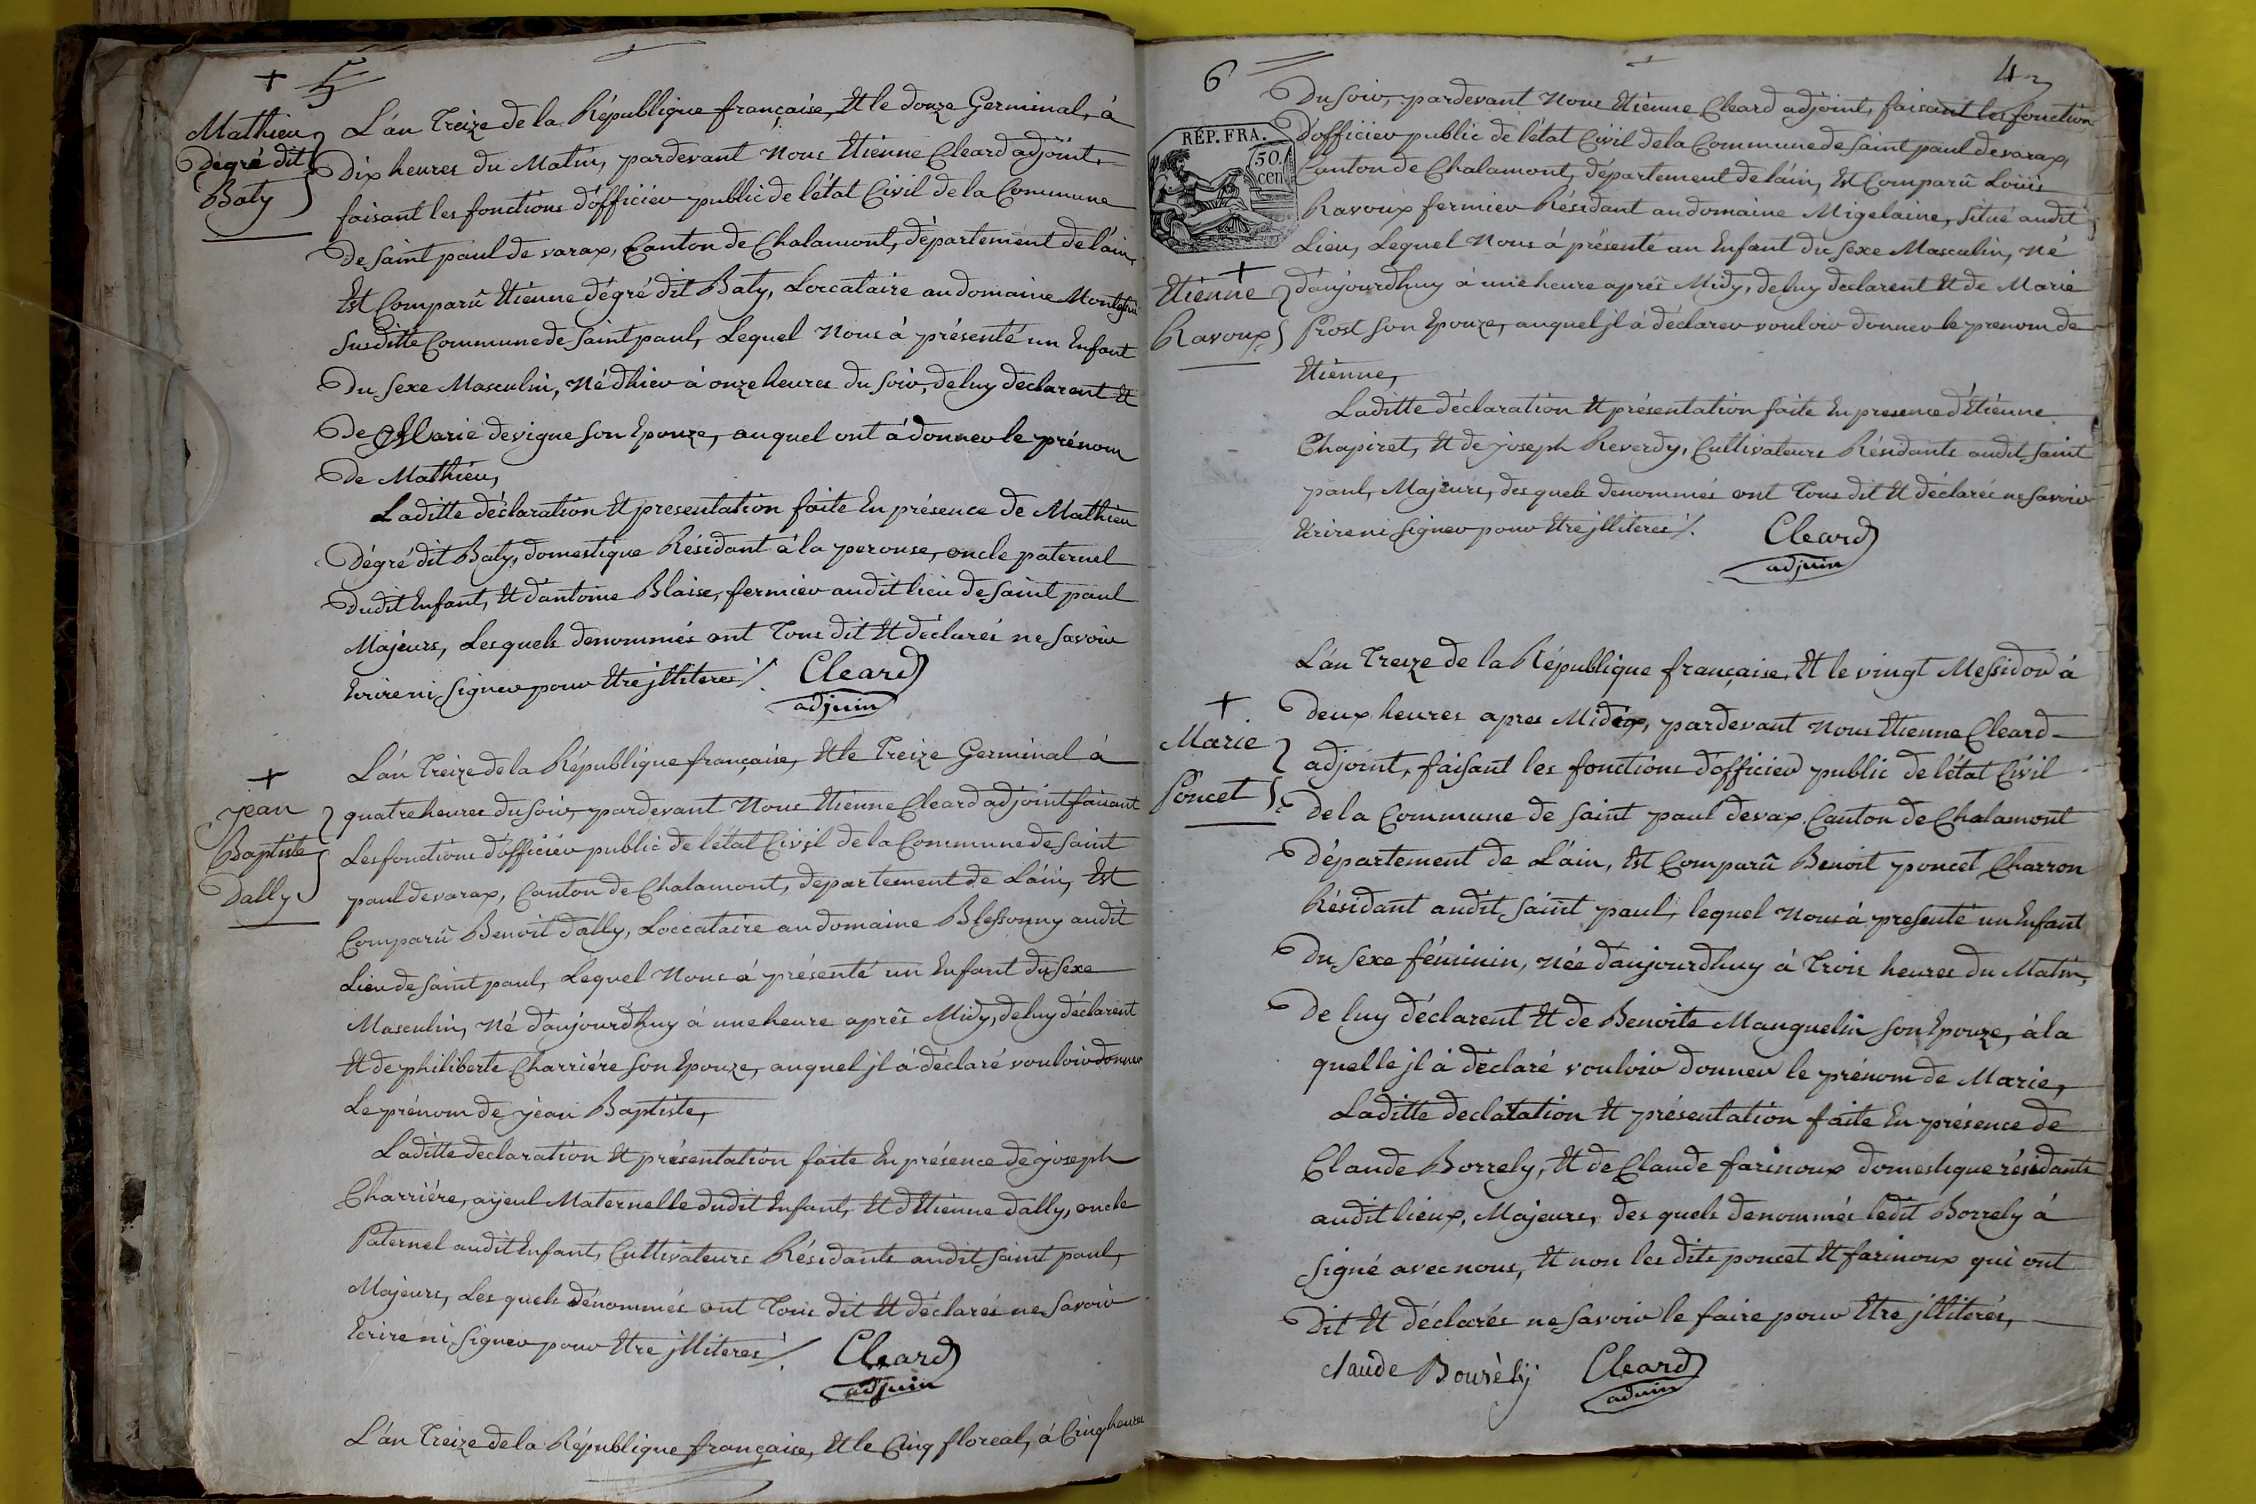 5
Mathieu
Dégré dit
Baty
L'án Treize de la République française, Et le douze Germinal, à
Dix heures du Matin, pardevant Nous Etienne Cleard adjoint,
faisant les fonctions d'officier public de l'état Civil de la Commune
de saint paul de varax, Canton de Chalamont, département de l'ain,
Est Comparû Etienne dégré dit Baty, Loccataire au domaine
Susditte Commune de saint paul, Lequel Nous à présenté un Enfant
Du Sexe Masculin, Né d'hier à onze heures du soir, de luy declarent Et
De Marie devigne son Epouze, auquel ont á donner le prénom
de Mathieu,
Laditte déclaration Et presentation faite En présence de Mathieu
Dégré dit Baty, domestique Résidant á la perouse, oncle paternel
Dudit Enfant, Et d'antoine Blaise, fermier audit lieu de saint paul
Majeurs, Lesquels denommés ont Tous dit Et déclarés ne savoir
Ecrire ni signer pour Etre jlliteres /.
Cleard
adjuin
Jean
Baptiste
Dally
L'án Treize de la République française, Et le Treize Germinal à
quatre heures du soir, pardevant Nous Etienne Cleard adjoint faisant
Les fonctions d'officier public de l'état Civil de la Commune de Saint
paul de varax, Canton de Chalamont, departement de L'áin, Est
Comparû Benoit dally, Loccataire au domaine Blessonny audit
Lieu de saint paul, Lequel Nous á présenté un Enfant du Sexe
Masculin, Né d'aujourd'huy á une heure aprês Midy, de luy déclarent
Et de philiberte Charriére son Epouze, auquel jl á déclaré vouloir donner
Le prénom de jean Baptiste,
Laditte declaration Et présentation faite En présence de joseph
Charriére, ayeul Maternelle dudit Enfant, Et d'Etienne dally, oncle
Paternel audit Enfant, Cultivateurs Résidants audit saint paul,
Majeurs, Les quels dénommés ont Tous dit Et déclarés ne savoir
Ecrire ni signer pour Etre jlliteres /.
Cleard
adjuin
L'án Treize de la République française, Et le Cinq floreal, á Cinq heures
6
4
RÉP. FRA.
50.
cen.
Etienne
Ravoux
Du soir, pardevant Nous Etienne Cleard adjoint, faisant les fonction
d'officier public de l'état Civil de la Commune de saint paul de varax,
Canton de Chalamont, département de l'áin, Est Comparû Loüis
Ravoux fermier Résidant au domaine Migelaine, situé audit
Lieu, Lequel Nous á présenté un Enfant du sexe Masculin, Né
d'aujourd'huy à une heure aprês Midy, de luy declarent Et de Marie
Prost son Epouze, auquel jl á déclarer vouloir donner le prenom de
Etienne,
Laditte déclaration Et présentation faite En presence d'Etienne
Chapiret, Et de joseph Reverdy, Cultivateurs Résidants audit saint
paul, Majeurs, des quels denommés ont Tous dit Et déclarés ne savoir
Ecrire ni signer pour Etre jlliteres /.
Cleard
adjuin
Marie
Poncet
L'án Treize de la République française, Et le vingt Messidor à
Deux heures apres Midix, pardevant Nous Etienne Cleard
adjoint, faisant les fonctions d'officier public de l'état Civil
De la Commune de saint paul devax Canton de Chalamont
Département de L'áin, Est Comparû Benoit poncet Charron
Résidant audit saint paul, lequel Nous á presenté un Enfant
Du sexe féminin, Née d'aujourd'huy á Trois heures du Matin,
De luy déclarent Et de Benoite Manguelin son Epouze, á la
quelle jl à déclaré vouloir donner le prénom de Marie,
Laditte declatation Et présentation faite En présence de
Claude Borrely, Et de Claude farinoux domestique résidants
audit lieux, Majeurs, des quels denommés ledit Borrely à
signé avec nous, Et non les dits poncet Et farinoux qui ont
Dit Et déclarés ne savoir le faire pour Etre jlliterés,
claude Bourèly
Cleard
aduin